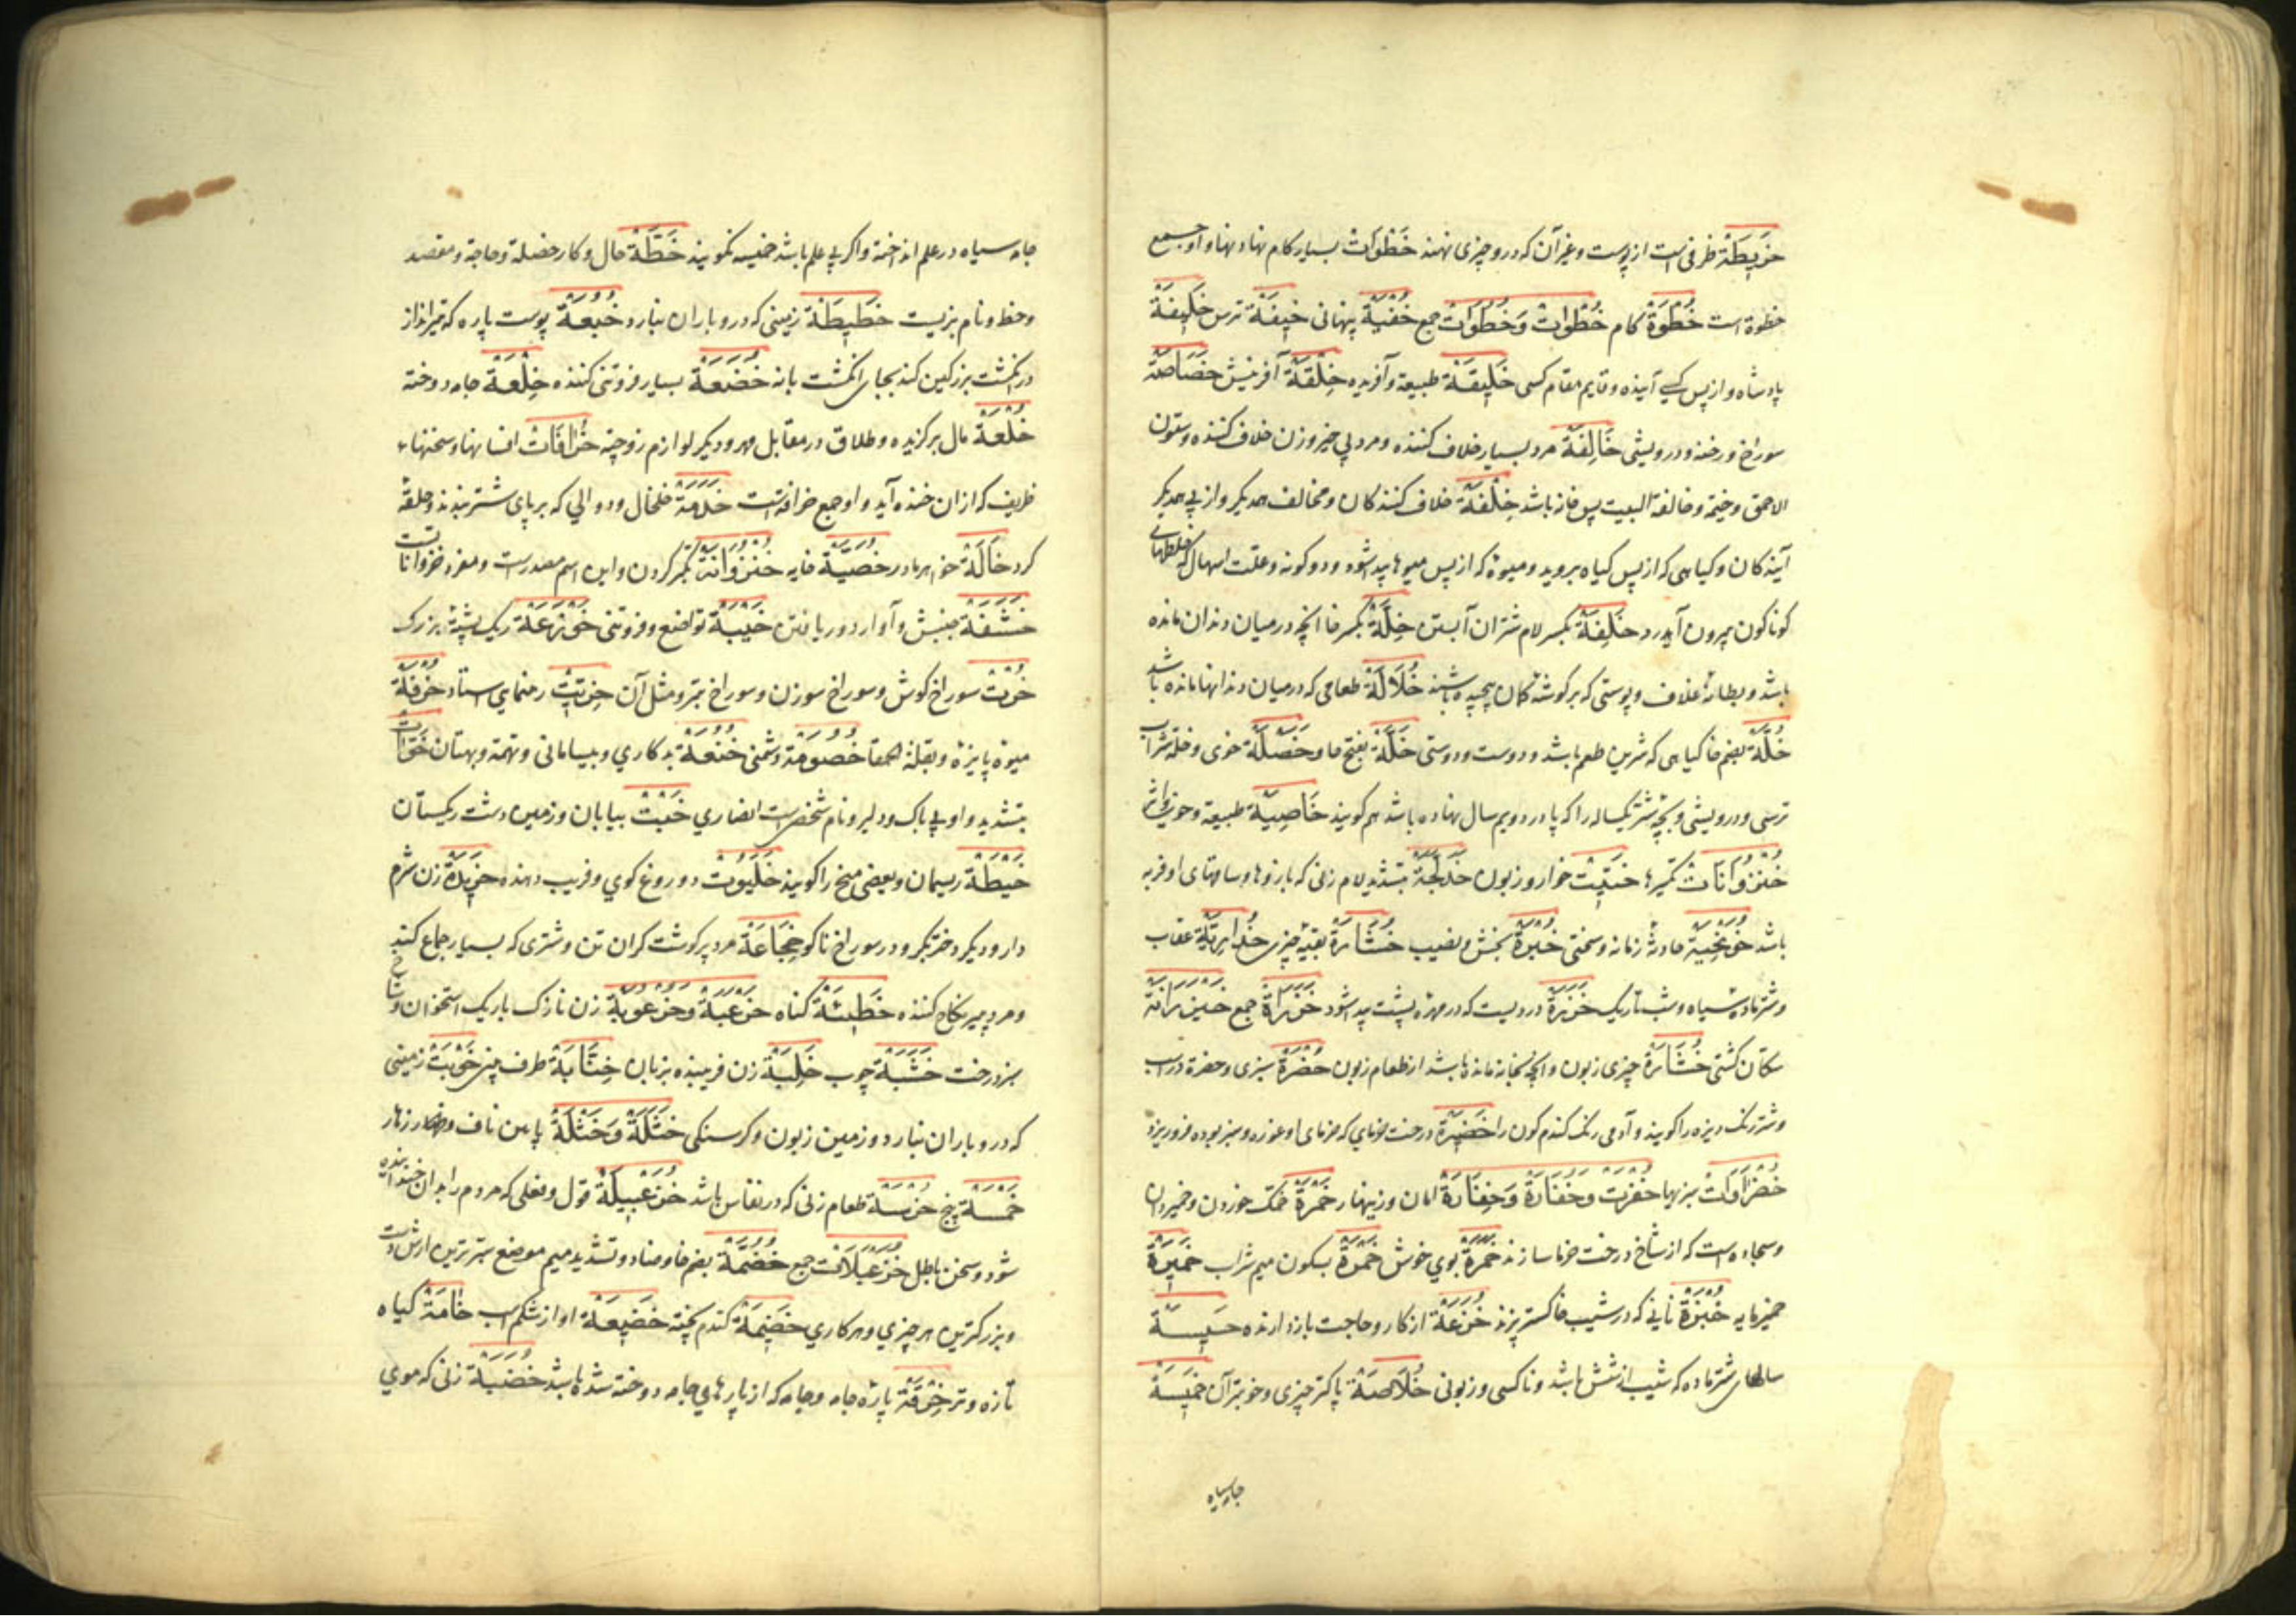 خَرِیطَةْ ظرفی است از پوست و غیر آن که درو چیزی نهند خَطَوَاتْ بسیار کام نهادنها و او جمع
خطوة است خُطْوَةْ کام خُطْوَاتْ وَخُطُوَاتْ جمع خُفْیَةْ پنهانی خِیفَةْ ترس خَلِیفَةْ
پادشاه و از پس کسی آینده و قایم مقام کسی خَلِیقَةْ طبیعة و آفریده خِلْقَةْ آفرینش خَصَاصَةْ
سوراخ و رخنه و درویشی خَالِفَةْ مرد بسیار خلاف کننده و مرد بی خیر و زن خلاف کننده و ستون
الاحمق و خیمه و خالفة البیت پس خانه باشد خِلْفَةْ خلاف کنندکان و مخالف همدیکر و از پی همدیکر
آیندکان و کیاهی که از پس کیاه بروید و میوۀ که از پس میوها پیدا شود و دو کونه و علت اسهال که خلطهای
کوناکون بیرون آید خَلِفَةْ بکسر لام شتران آبستن خِلَّةْ بکسر خا آنچه در میان دندان مانده
باشد و بطانۀ غلاف و پوستی که بر کوشۀ کمان پیچیده باشند خُلَالَةْ طعامی که در میان دندانها مانده باشد
خُلَّةْ بضم خا کیاهی که شرین طعم باشد و دوست و دوستی خَلَّةْ بفتح خا و خَصْلَةْ خوی و خلة شراب
ترشی و درویشی و بچۀ شتر یکساله را که پا در دویم سال نهاده باشد هم کویند خَاصِیَّةْ طبیعة و خوی و اثر
خُنْزُوَانَاتْ تکبرها خَبِیثْ خوار و زبون خَدَلَّجَةْ بتشدید لام زنی که بازوها و ساقهای او فربه
باشد حادثۀ زمانه و سختی خُبْرَةْ بخش و نصیب خُشَارَةْ بقیۀ چیزی خُدَارِیَّةْ عقاب
و شتر ماده سیاه و شب تاریک خَزَرَةْ دردیست که در مهره پشت پیدا شود جمع خَیْزُرَانَةْ
سکان کشتی خُشَارَةْ چیزی زبون و آنچه بخانه مانده باشد از طعام زبون خُضْرَةْ سبزی و خضرة در اسب
و شتر رنک دیزه را کویند و آدمی رنک کندم کون را خَضِیرَةْ درخت خرمای که خرمای او غوره و سبز بوده فرو ریزد
خُضْرَاوَاتْ سبزیها خُفْرَتْ وَخُفَارَةْ وَخِفَارَةْ امان و زینهار خُمْرَةْ خمک خوردن و خمیردان
و سجاده است که از شاخ درخت خرما سازند خُمْرَةْ بوی خوش خَمْرَةْ بسکون میم شراب خَمِیرَةْ
خمیر مایه خُبْزَةْ نانی که در شیب خاکستر پزند خُزَعَةْ از کار و حاجت باز دارنده خَسِیسَةْ
سالهای شتر ماده که شیب از شش باشد و ناکسی و زبونی خُلَاصَةْ پاکتر چیزی و خوبتر آن خَمِیصَةْ
جامه سیاه
جامه سیاه در علم انداخته و اکر بی علم باشد خمیصه نکویند خُطَّةْ حال و کار و خصلة و حاجة و مقصد
و خط و نام بزیست خَطِیطَةْ زمینی که درو باران نبارد پوست پاره که تیرانداز
در انکشت بزرکین کند بجای انکشتبانه خُضَعَةْ بسیار فروتنی کننده خِلْعَةْ جامه دوخته
خُلْعَةْ مال برکزیده و طلاق در مقابل مهر و دیکر لوازم زوجیة خُرَافَاتْ افسانها و سخنهای
ظریف که از ان خنده آید و او جمع خرافتست خَدَمَةْ خلخال و دوالی که بر پای شتر بندند و حلقه
کرد خَالَةْ خواهر مادر خُصْیَةْ خایه خُنْزُوَانَةْ تکبر کردن و این اسم مصدرست و مفرد خنزواناتست
خَشَفَةْ جنبش و آواز و دریافتن تواضع و فروتنی ریک پشتۀ بزرک
خُرْتْ سوراخ کوش و سوراخ سوزن و سوراخ تبر و مثل آن خِرِّیتْ رهنمای استاد خُرْفَةْ
میوۀ پاییزه و بقلة الحمقا خُصُومَةْ دشمنی بدکاری و بیسامانی و تهمة و بهتان خَوَّاتْ
بتشدید واو بی باک و دلیر و نام شخصیست انصاری خَبْتْ بیابان و زمین دشت ریکستان
خَیْطَةْ ریسمان و بعضی میخ را کویند دروغ کوی و فریب دهنده خَرِیدَةْ زن شرم
دار و دیکر دختر بکر و در سوراخ ناکرده مرد پر کوشت کران تن و شتری که بسیار جماع کند
و مرد بسیر نکاح کننده خَطِیئَةْ کناه خَرْعَبَةْ وَخُرْعُوبَةْ زن نازک باریک استخوان و شاخ
سبز درخت خَشَبَةْ چوب زن فریبنده بزبان طرف چیز زمینی
که درو باران نبارد و زمین زبون و کرسنکی خَثْلَةْ وَخَثَلَةْ پایین ناف و زهار
خَمْسَةْ پنج خُرْسَةْ طعام زنی که در نفاس باشد خُزَعْبِیلَةْ قول و فعلی که مردم را بدان خنداننده
شود و سخن باطل خُزَعْبِیلَاتْ جمع خُضُمَّةْ بضم خا و ضاد و تشدید میم موضع سبزترین از دست
و بزرکترین هر چیزی و هر کاری خَضِیمَةْ کندم پخته خَضِیعَةْ آواز شکم اسب خَامَةْ کیاه
تازه و تر خِرْقَةْ پارۀ جامه و جامه که از پارهای جامه دوخته شده باشد خَضْبَةْ زنی که موی